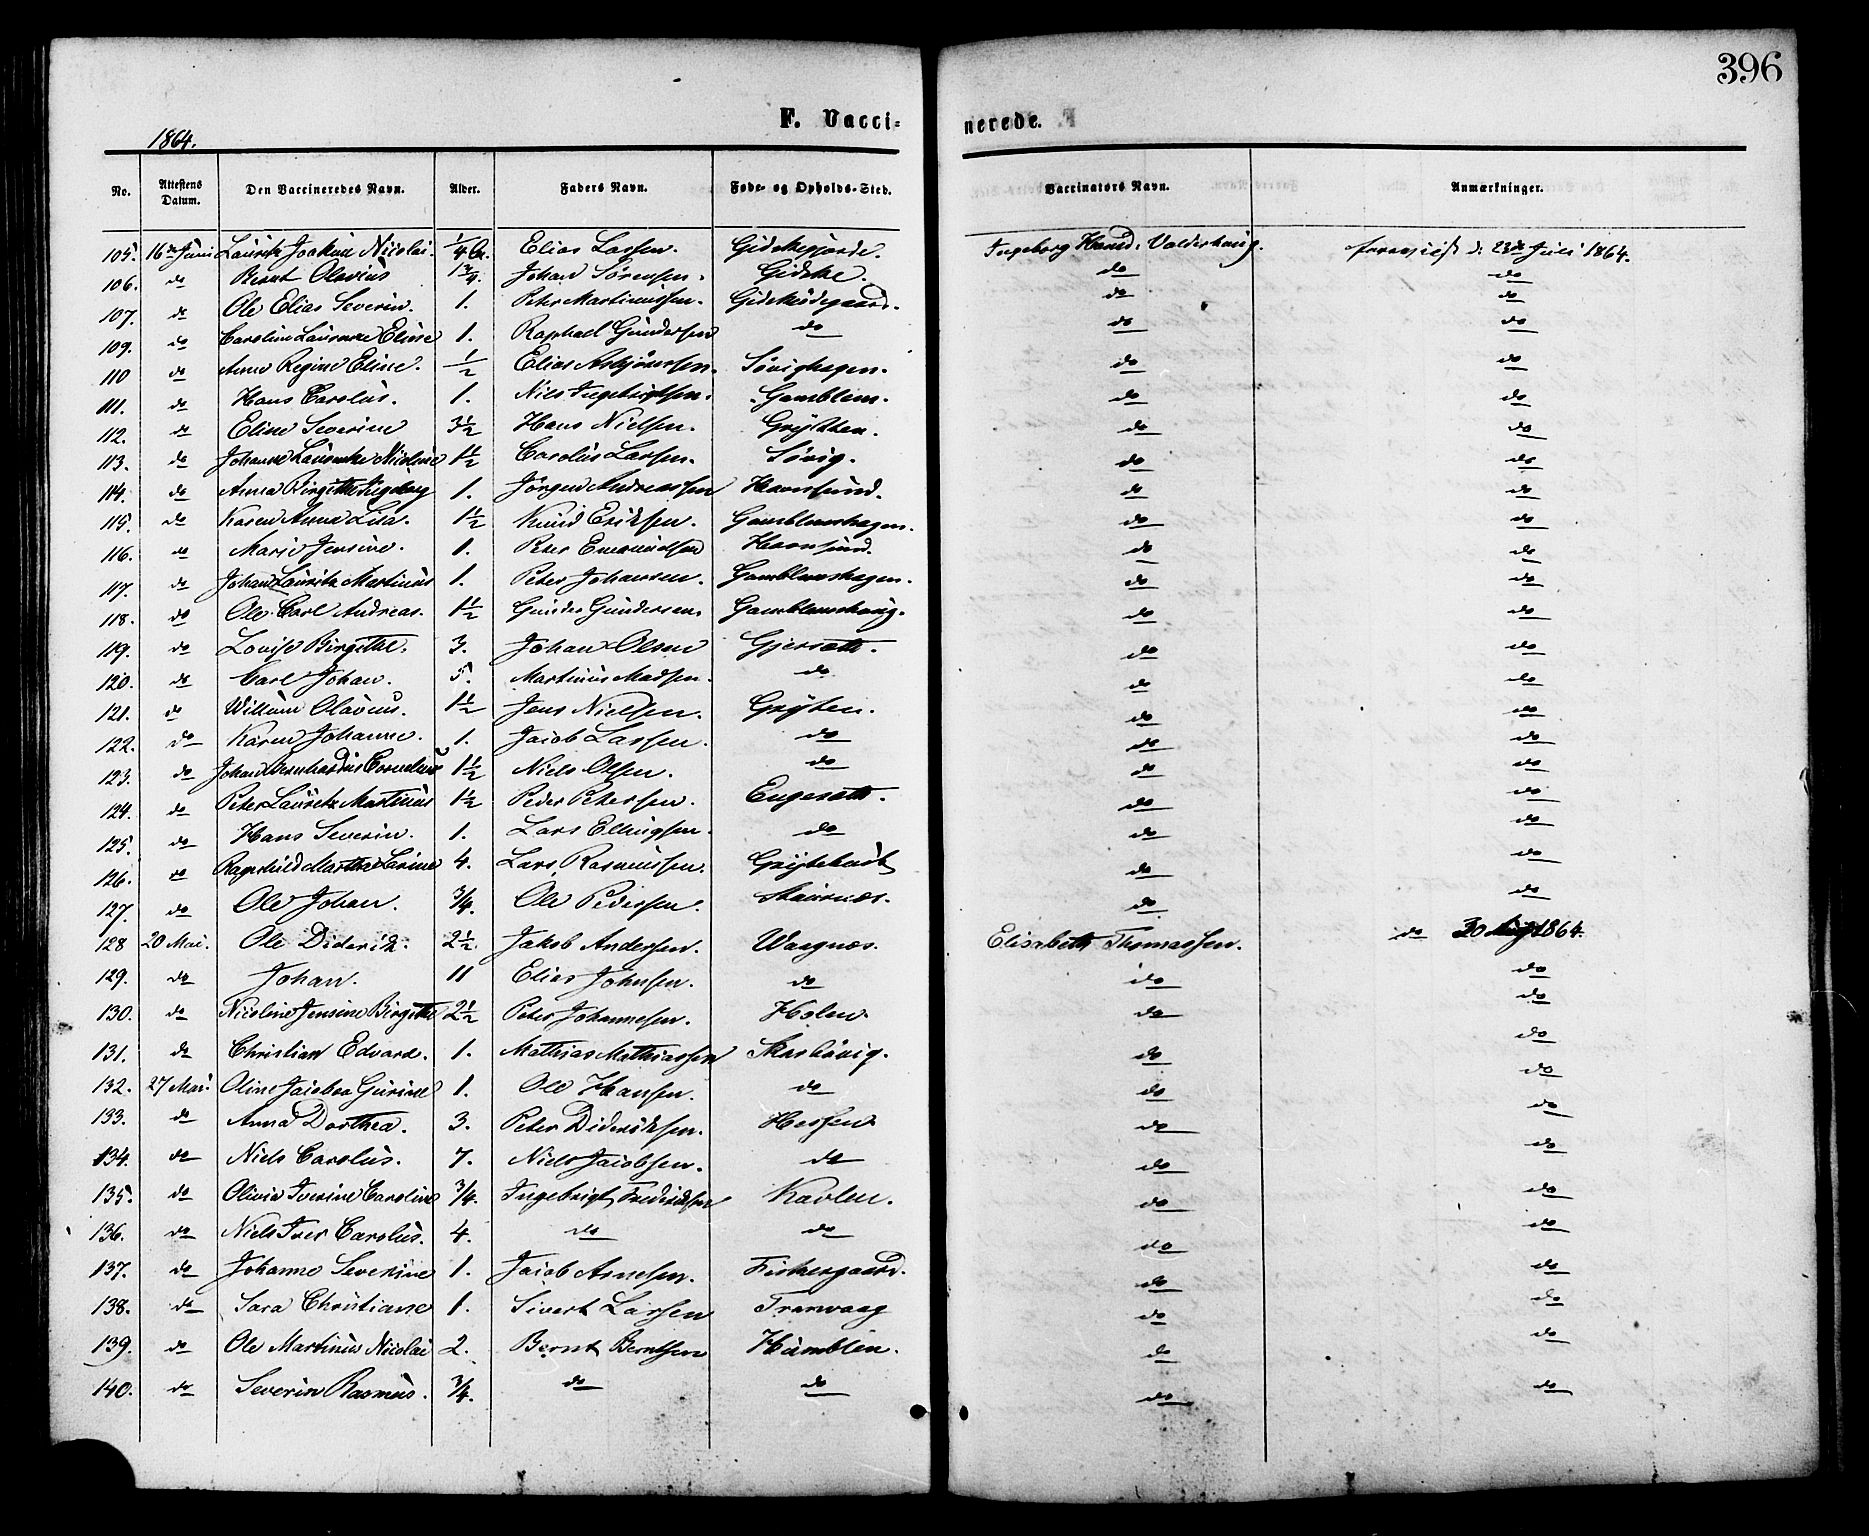 396
F. Vacci-
nerede.
1864.
No. Attestens Datum. Den Vaccineredes Navn. Alder. Faders Navn. Føde- og Opholds-Sted. Vaccinators Navn. Anmærkninger.
105. 16de Juni Lauritz Joakim Nicolai. 1/4 Elias Larsen. Gidskegjerde. Ingeborg Valderhaug. d. 23de Juli 1864.
106. do Bernt Olavius 1 3/4. Johan Sørensen. Gidske. do do
107. do Ole Elias Severin. 1. Peter Martinussen. Gidskødegaard. do do
109. do Caroline Laurentze Elise 1. Raphael Gundersen do do do
110 do Anne Regine Eline. 1/2 Elias Asbjørnssen. Søvighagen. do do
111. do Hans Carolus. 1. Niels Ingebrigtsen. Gamblem. do do
112. do Eline Severine 3 1/2 Hans Nielsen. Grytten. do do
113. do Johanne Laurentze Nicoline 1 1/2 Carolus Larsen. Søvig. do do
114. do Anna Birgitte Ingeborg 1. Jørgen Andreassen Havnsund. do do
115. do Karen Anna Lisa. 1 1/2 Knud Eriksen. Gamblemshagen. do do
116. do Marie Jensine. 1. Peter Havnsund. do do
117. do Johan Lauritz Martinus 1. Peter Johansen. Gamblemshagen. do do
118. do Ole Carl Andreas. 1 1/2 Gunder Gundersen. Gamblemshaug. do do
119. do Lovise Birgithe. 3. Johan Olsen Gjersæth. do do
120. do Carl Johan. 5. Martinus Madsen. do do do
121. do William Olavus. 1 1/2 Jens Nielsen. Gryten. do do
122. do Karen Johanne. 1. Jacob Larsen. do do do
123. do Johan Bernhardus Cornelius 1 1/2 Niels Olsen. do do do
124. do Peter Lauritz Martinus 1 1/2 Peder Petersen. Engesæth. do do
125. do Hans Severin. 1. Lars Ellingsen. do do do
126. do Ragnhild Martha Lovine 4. Lars Rasmussen. do do
127. do Ole Johan. 3/4. Ole Pedersen. do do
128 20 Mai. Ole Diderik. 2 1/2. Jakob Andersen. Waagnæs. Elisabeth Thomassen. do 30 Aug 1864.
129. do Johan. 11 Elias Johnsen. do do do
130. do Nicoline Jensine Birgitte 2 1/2 Peter Johannesen. Holen. do do
131. do Christian Edvard. 1. Mathias Mathiassen Skarbøvig. do do
132. 27 Mai. Oline Jacobea Gurine 1. Ole Hansen. do do do
133. do Anna Dorthea. 3. Peter Dideriksen. Hessen do do
134. do Niels Carolus. 7. Niels Jacobsen. do do do
135. do Olivia Iverine Caroline 3/4. Ingebrigt Frederiksen Kavlen. do do
136. do Niels Iver Carolus. 4. do do do do
137. do Johanne Severine 1. Jacob Arnesen. Fiskergaard. do do
138. do Sara Christiane 1. Sivert Larsen Tranvaag do do
139. do Ole Martinus Nicolai 2. Bernt Berntsen Humblen. do do
140. do Severin Rasmus. 3/4. do do do do